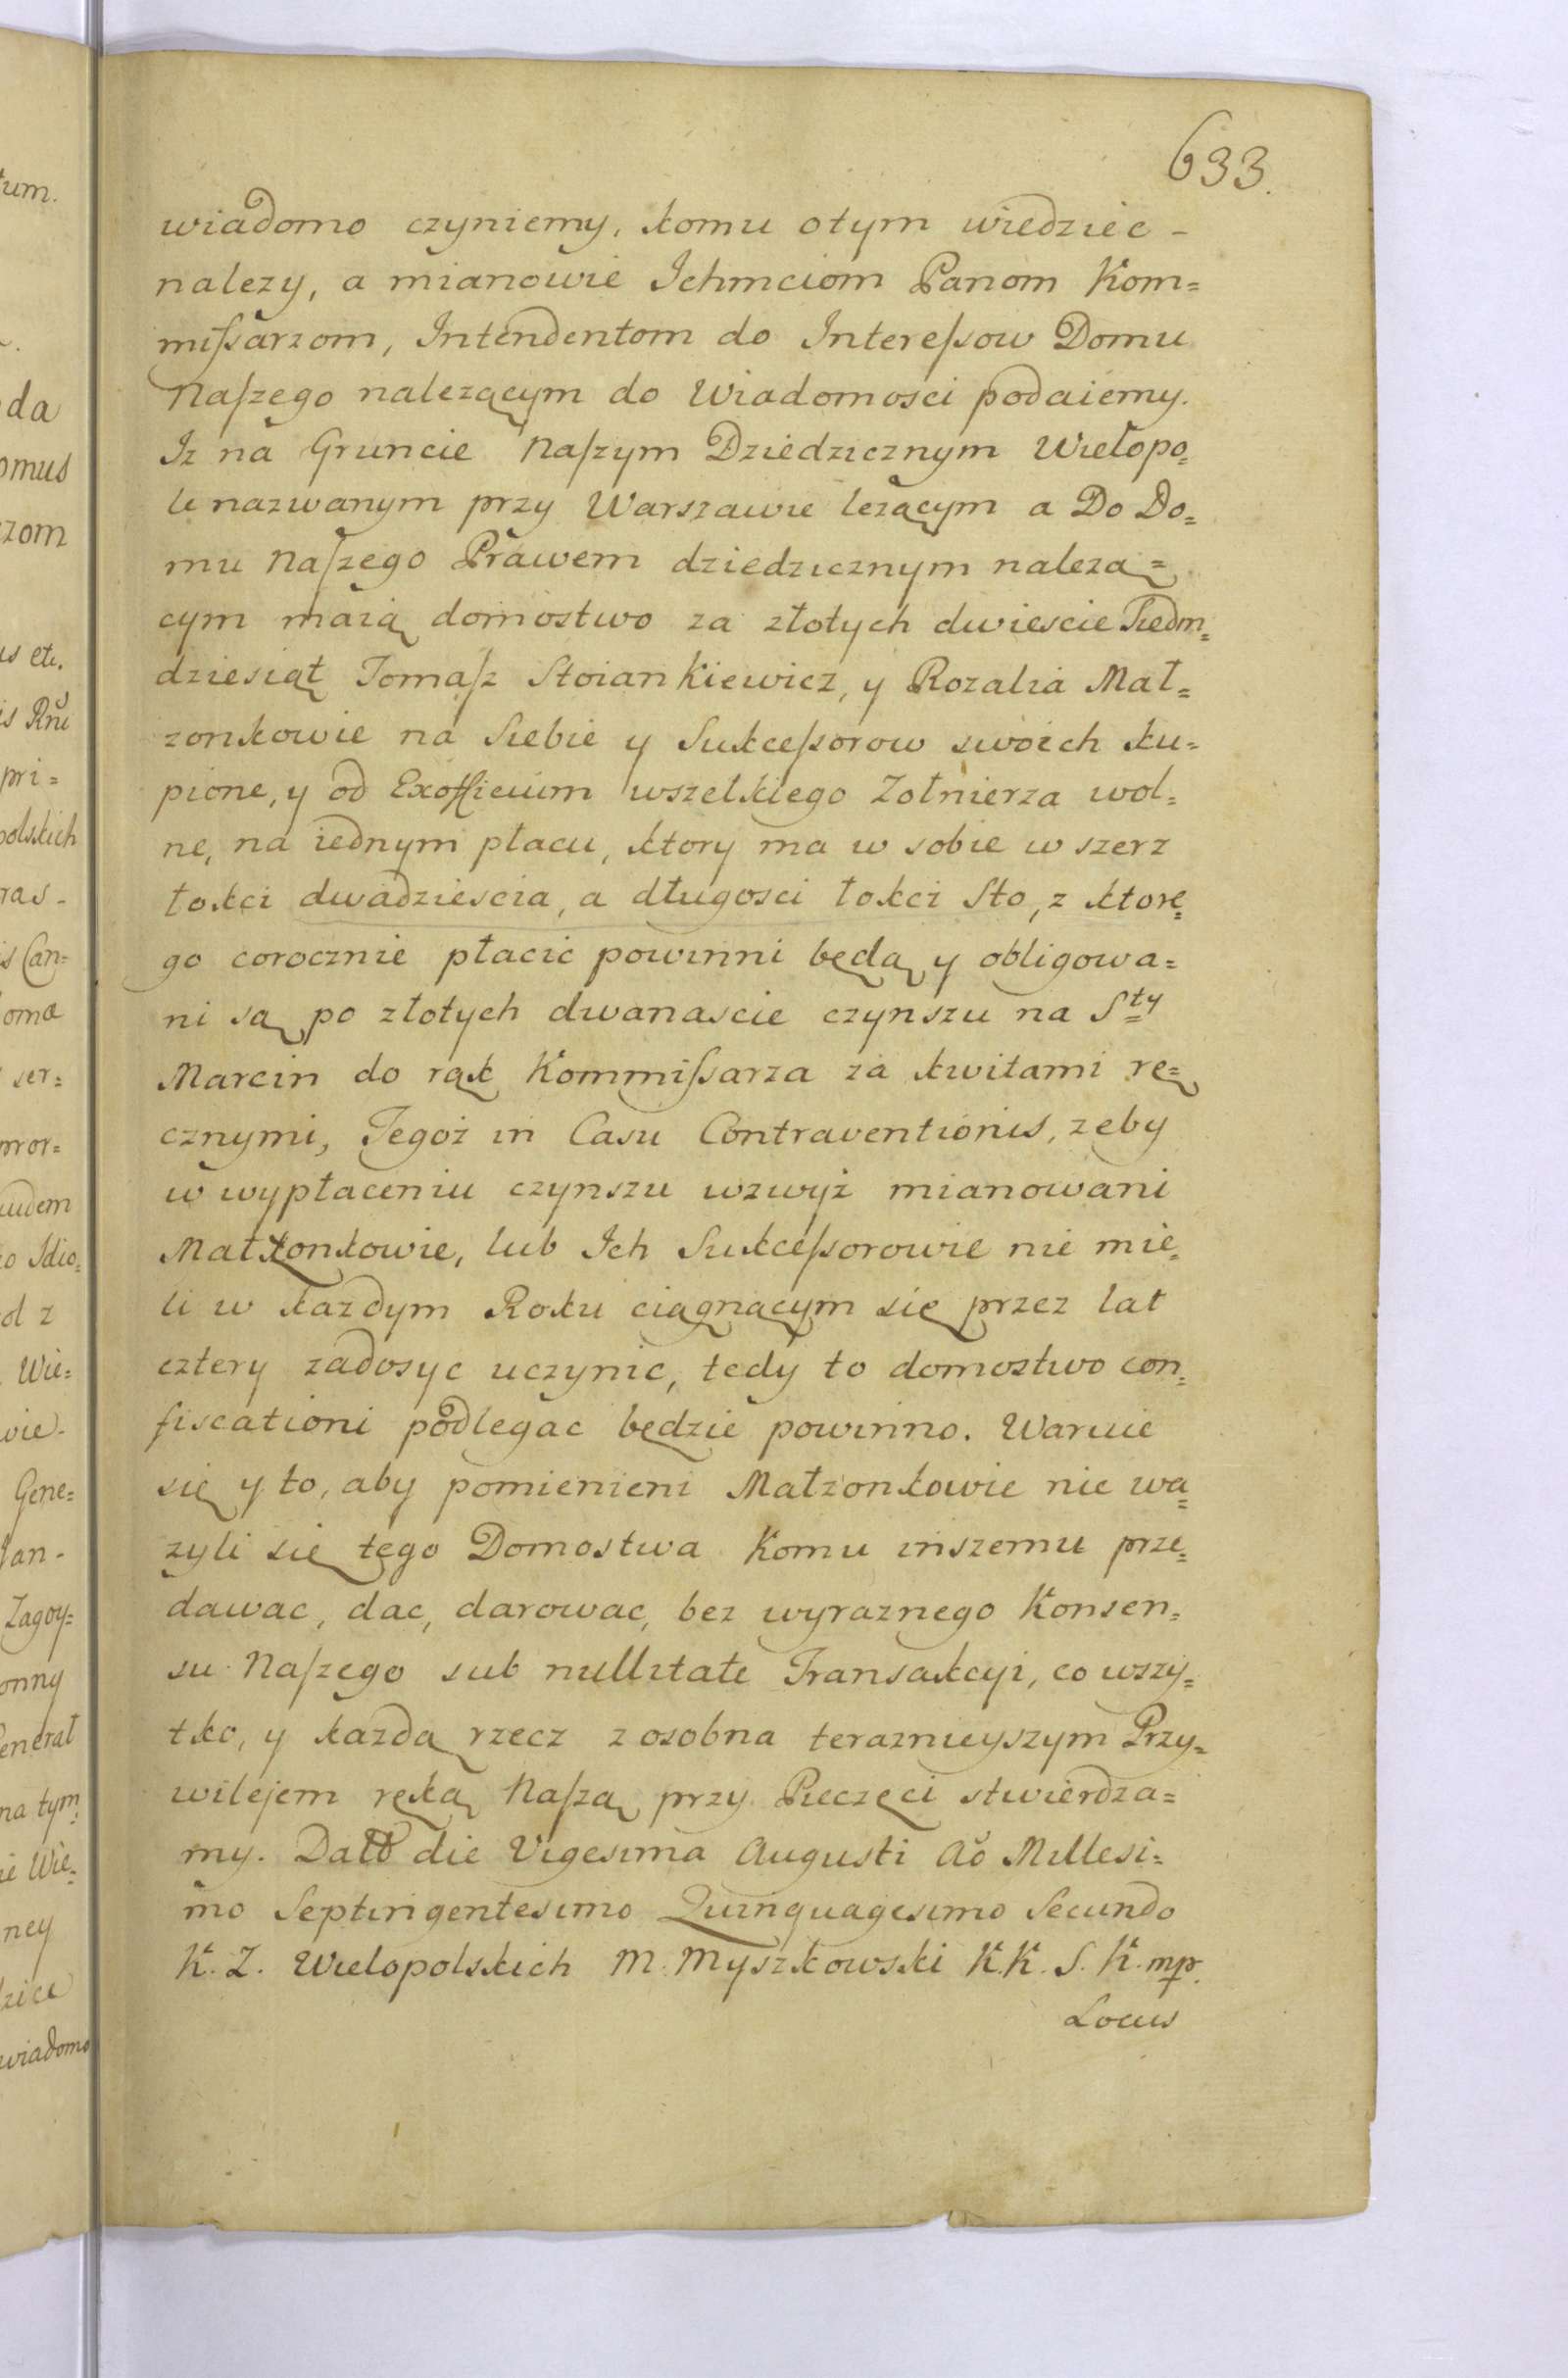 633.
wiadomo czyniemy, komu otym wiedziec -
nalezy, a mianowie Ichmciom Panom Kom=
mißarzom, Intendentom do Intereßow Domu
Naſzego należącym do Wiadomosci podaiemy.
Iz na Gruncie Naſzym Dziedzicznym Wielopo=
li nazwanym przy Warszawie lezącym a Do Do=
mu Naſzego Prawem dziedzicznym nalezą=
cym maią domostwo za złotych dwiescie Siedm=
dziesiąt Tomaſz Stoiankiewicz, y Rozalia Mał=
zonkowie na Siebie y Sukceßorow swoich ku=
pione, y od Exofficium wszelkiego Zołnierza wol=
ne, na iednym placu, ktory ma w sobie w szerz
łokci dwadziescia, a długosci łokci Sto, z ktore=
go corocznie płacić powinni będą y obligowa=
ni są po złotych dwanascie czynszu na Sty
Marcin do rąk Kommißarza za kwitami rę=
cznymi, Tegoż in Casu Contraventionis, zeby
w wypłaceniu czynszu wzwyż mianowani
Małżonkowie, lub Ich Sukceßorowie nie mie=
li w każdym Roku ciągnącym się przez lat
cztery zadosyc uczynic, tedy to domostwo con=
fiscationi podlegac będzie powinno. Waruie
się y to, aby pomienieni Małzonkowie nie wa=
zyli się tego Domostwa Komu inszemu prze=
dawac, dac, darowac, bez wyraznego Konsen=
su Naſzego sub nullitate Transakcyi, co wszy=
tko, y kazdą rzecz z osobna teraznieyszym Przy=
wilejem ręką Naſzą przy Pieczęci stwierdza=
my. Datt die Vigesima Augusti Ao Millesi=
mo Septingentesimo Quinquagesimo Secundo
K. Z. Wielopolskich M. Myszkowski K.K. S. K. mp.
Locus
tum.
da
omus
zom
us etc.
pri=
polskich
ras -
is Can=
ser=
mror=
o Idio=
ol z
Wie=
wie -
Gene=
Zagoy=
onny
enerał
na tym
ie Wie=
ney
dzice
wiadomo